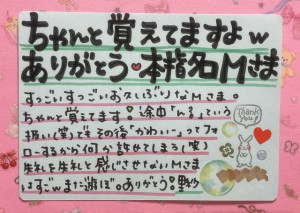 ちゃんと覚えてますよw
ありがとう♥本指名Mさま
すっごいすっごいお久いぶりなMさま。
ちゃんと覚えてます!途中「んる」っていう
扱い(笑)でもその後「かわいい」ってフォ
ローするかが何か許せてしまう(笑)
失礼を失礼と感じさせないMさま
はすごwまた遊ぼ。ありがとう。
Thank you